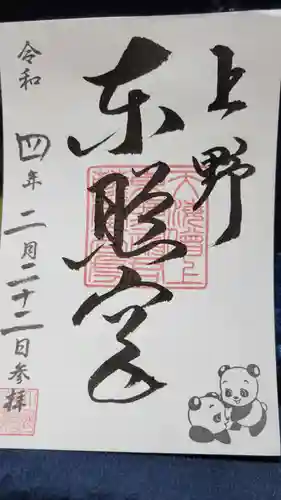 上野
東照宮
令和四年二月二十二日参拝